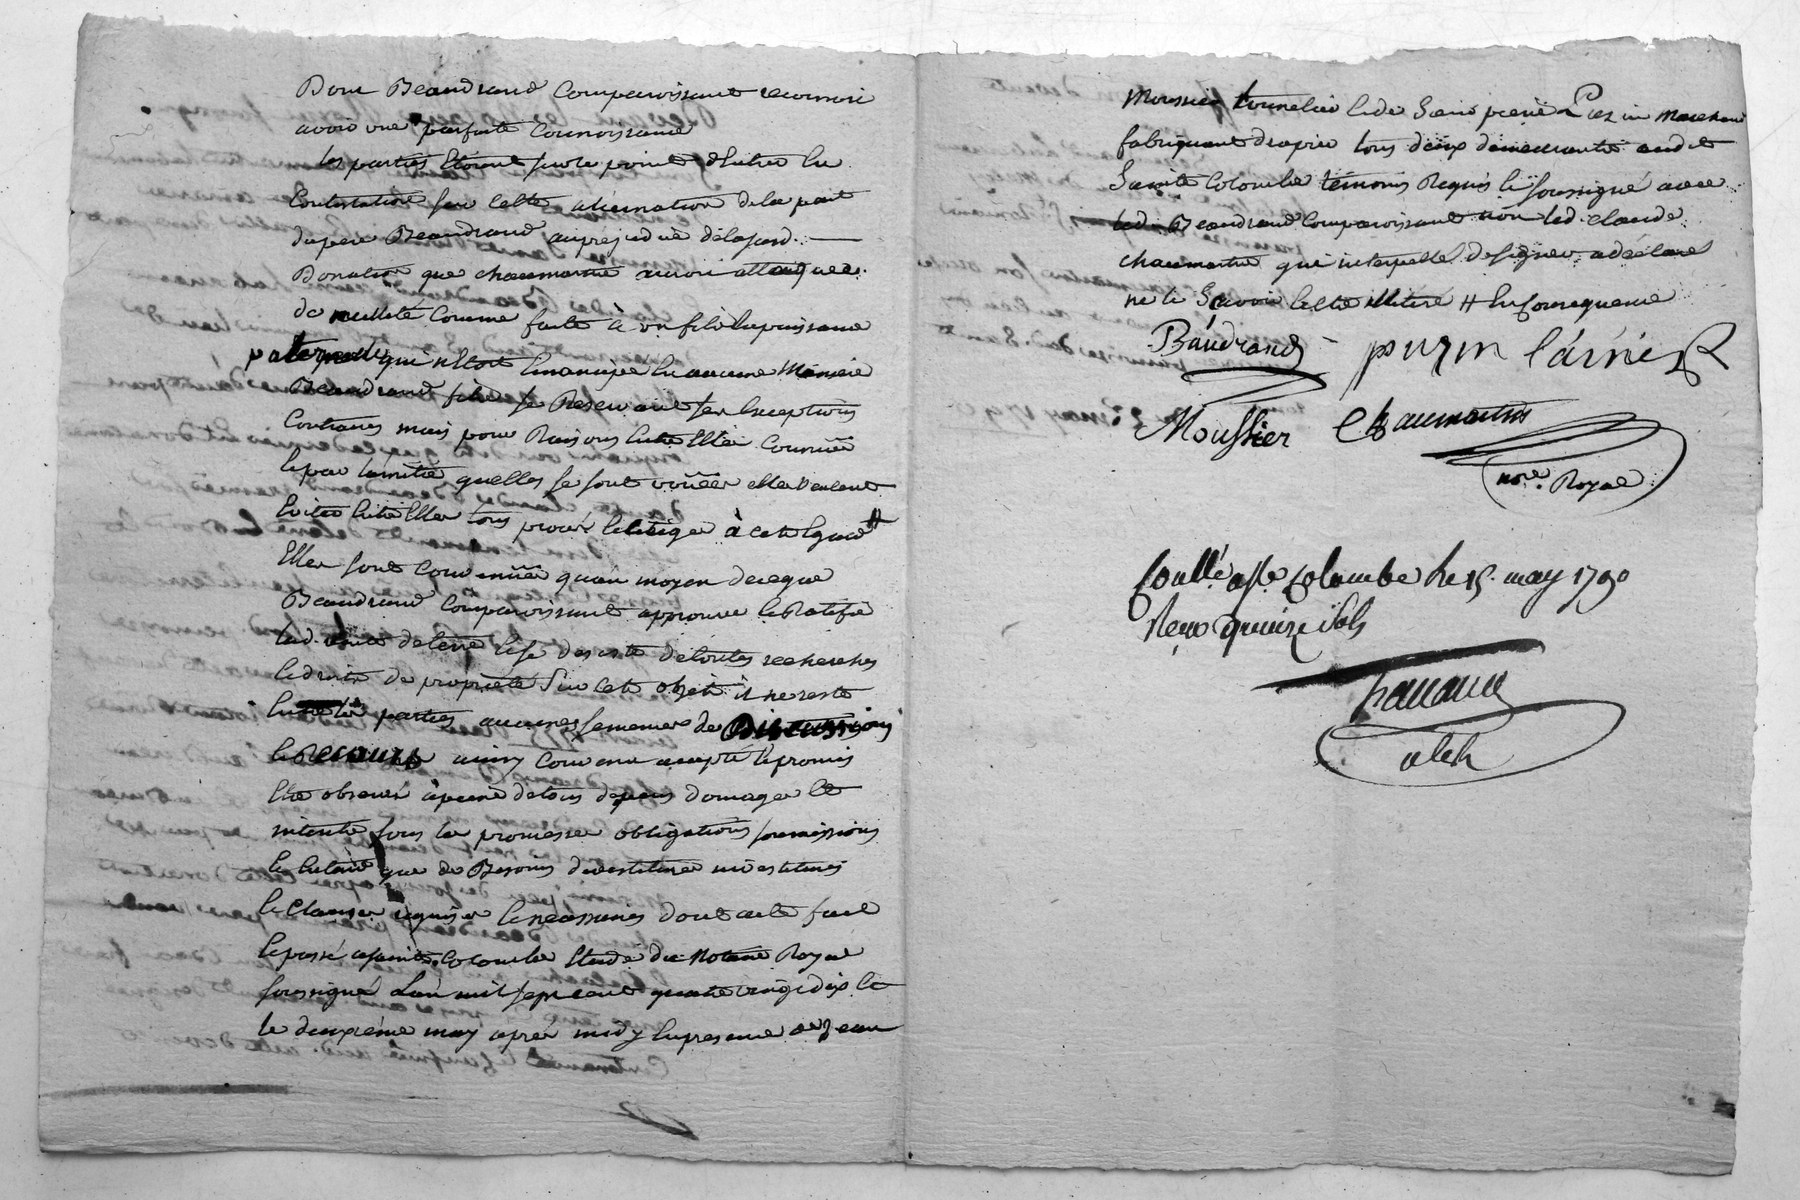 Dont Beaudrand Comparoissant reconnoi
avoir une parfaite Connoissance
les parties Etoient sur le point d'Entrer En
Contestation sur Cette alienation de la part
du pere Beaudrand au prejudice de la susd.
Donation que chaumartin auroit attaquée
de nullité Comme faite à un fils En puissance
paternelle qui n'Etoit Emancipé En aucune Maniere
Beaudrand fils se Reservant ses Exceptions
Contraires mais pour Raisons Entre Elles
Et par l'amitié quelles se sont vouées Elles veulent
Eviter Entre Elles tous procés Et litige à cet Egard #
Elles sont Convenües qu'au moyen de ce que
Beaudrand Comparoissant approuve Et Ratifie
lad. vente de terre Et se desiste de toutes recherches
Et droits de propriété Sur Cet objet il ne reste
Entre les parties aucunes semences de Discussions
Et Recours ainsy Convenu accepté Et promis
Etre observé à peine de tous depens Domages Et
interets sous les promesses obligations soumissions
En Entier que de Besoins devestitures investitures
Et Clauses requises Et necessaires dont acte fait
Et passé a sainte Colombe Etude du Notaire Royal
soussigné L'an mil sept cent quatre vingt dix Et
le deuxiéme may aprés midy En presence de Jean
Moussier tonnelier Et de Sieur pierre Puzin Marchand
fabriquant drapier tous deux demeurants aud.t
Sainte Colombe temoins Requis Et soussignés avec
led. Beaudrand Comparoissant non led. claude
chaumartin qui interpellé de signer a déclaré
ne le Sçavoir Et Etre illitéré # En Consequence
Baudrand puzin l'ainé
Moussier Chaumartin
no.re Royal
Conllé a S.te Colombe Le 15 may 1790
Reçu quinze sols